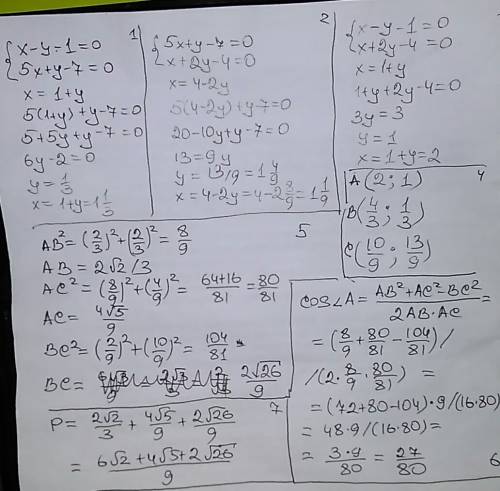 1)
{x-y-1=0
{5x+y-7=0
x=1+y
5(1+y)+y-7=0
5+5y+y-7=0
6y-2=0
y=1/3
x=1+y=1 1/3
2
{5x+y-7=0
{x+2y-4=0
x=4-2y
5(4-2y)+y-7=0
20-10y+y-7=0
13=9y
y=13/9=1 4/9
x=4-2y=4-2 8/9=1 1/9
{x-y-1=0
{x+2y-4=0
x=1+y
1+y+2y-4=0
3y=3
y=1
x=1+y=2
4
A(2;1)
B(4/3;1/3)
C(10/9;13/9)
5
AB²=(2/3)²+(2/3)²=8/9
AB=2√2/3
AC²=(8/9)²+(4/9)²=(64+16)/81=80/81
AC=4√5/9
BC²=(2/9)²+(10/9)²=104/81
BC= 2√26/9
COS∠A=(AB²+AC²-BC²)/(2AB·AC)=
=(8/9+80/81-104/81)/
/(2·8/9·80/81)=
=(72+80-104)·9/(16·80)
=48·9/(16·80)=
=3·9/80=27/80
6
7
P=2√2/3+4√5/9+2√26/9
=(6√2+4√5+2√26)/9